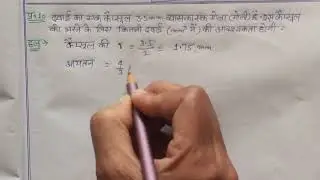 प्रश्न10 दवाई का एक कैप्सूल 3.5 mm व्यास का एक गोला (गोली) है इस कैप्सूल
को भरने के लिए कितनी दवाई (mm³ में) की आवश्यकता होगी?
हल:- कैप्सूल की r = 3.5/2 = 1.75 mm
आयतन = 4/3